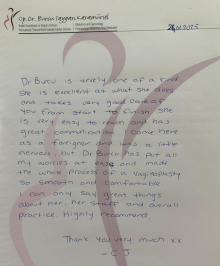 Op. Dr. Burcu
26/01/2025
Dr Burcu is truly one of a kind
She is excellent at what she does
and takes very good care of
you from start to finish. She
is very easy to reach and has
great communication. I came here
as a foreigner and was a little
nervous, but Dr Burcu has put all
my worries at ease and made
the whole process of a Vaginoplasty
so smooth and comfortable
I can only say great things
about her, her staff and overall
practice. Highly recommend.
Thank you very much xx
- C J